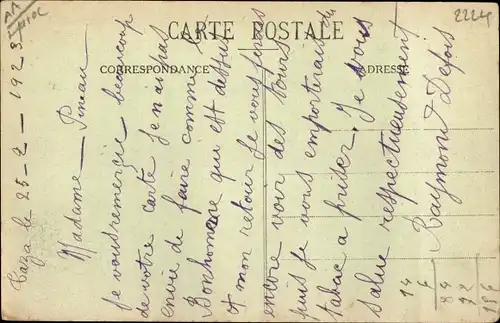 CARTE POSTALE
CORRESPONDANCE
ADRESSE
2224
Taza le 25-2-1923
Madame Pineau
Je vous remercie beaucoup
de votre carte Je n'ai pas
envie de faire comme le
Bonhomme qui est dessus
A mon retour Je vous ferais
encore voir des tours
puis Je vous emporterais du
tabac a priser. Je vous
salue respectueusement
Raymond Defois
14
84